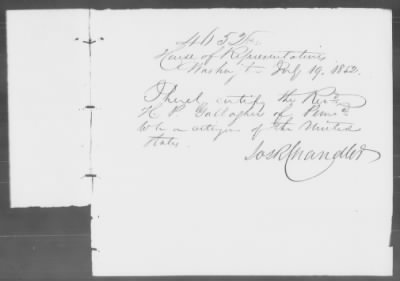 House of Representatives
Washgt July 19. 1852.
I hereby certify the Revd
H. P. Gallagher of Penna
to be a citizen of the United
States.
Jos R Chandler